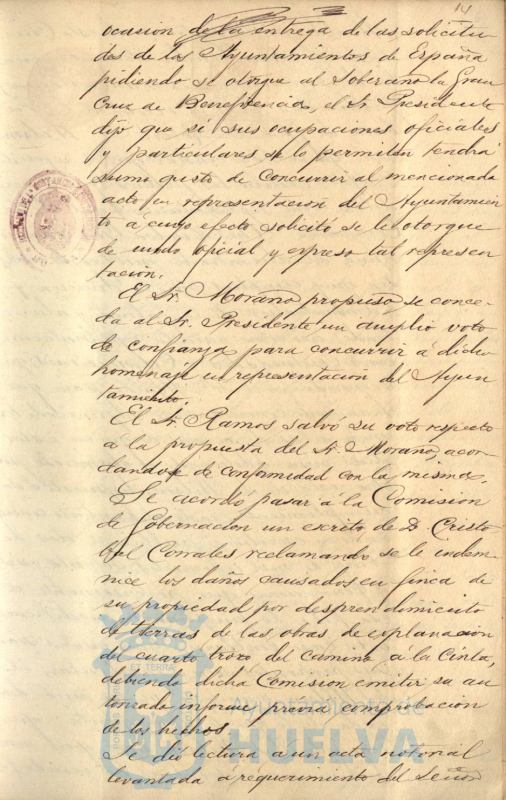 14
ocasion de la entrega de las solicitu
des de los Ayuntamientos de España
pidiendo se otorgue al Soberano la Gran
Cruz de Beneficencia, el Sr. Presidente
dijo que si sus ocupaciones oficiales
y particulares se lo permitian tendrá
sumo gusto de concurrir al mencionado
acto en representacion del Ayuntamien
to á cuyo efecto solicitó se le otorgue
de modo oficial y expreso tal represen
tacion.
El Sr. Moraño propuso, se conce
da al Sr. Presidente un amplio voto
de confianza para concurrir á dicho
homenaje en representacion del Ayun
tamiento.
El Sr. Ramos salvó su voto respecto
á la propuesta del Sr. Moraño, acor
dandose de conformidad con la misma.
Se acordó pasar á la Comision
de Gobernacion un escrito de D. Cristo
bal Corrales reclamando se le indem
nice los daños causados en finca de
su propiedad por desprendimiento
de tierras de las obras de explanacion
del cuarto trozo del camino á la Cinta,
debiendo dicha Comision emitir su au
torizado informe previa comprobacion
de los hechos.
Se dió lectura a un acta notarial
levantada á requerimiento del Señor
Ayuntamiento de
HUELVA